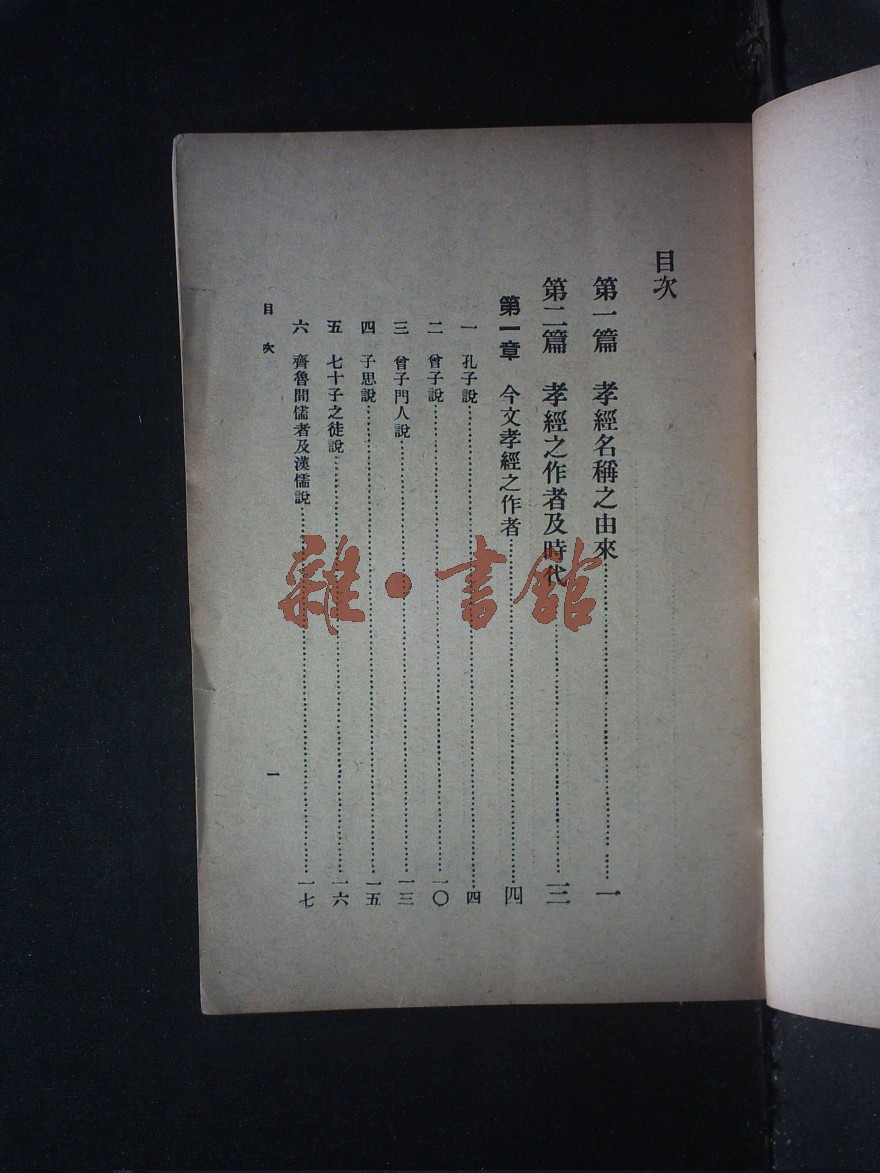 目次
第一篇 孝經名稱之由來……一
第二篇 孝經之作者及時代……三
第一章 今文孝經之作者……四
一 孔子說……四
二 曾子說……一〇
三 曾子門人說……一三
四 子思說……一五
五 七十子之徒說……一六
六 齊魯間儒者及漢儒說……一七
目次
一
雜·書館